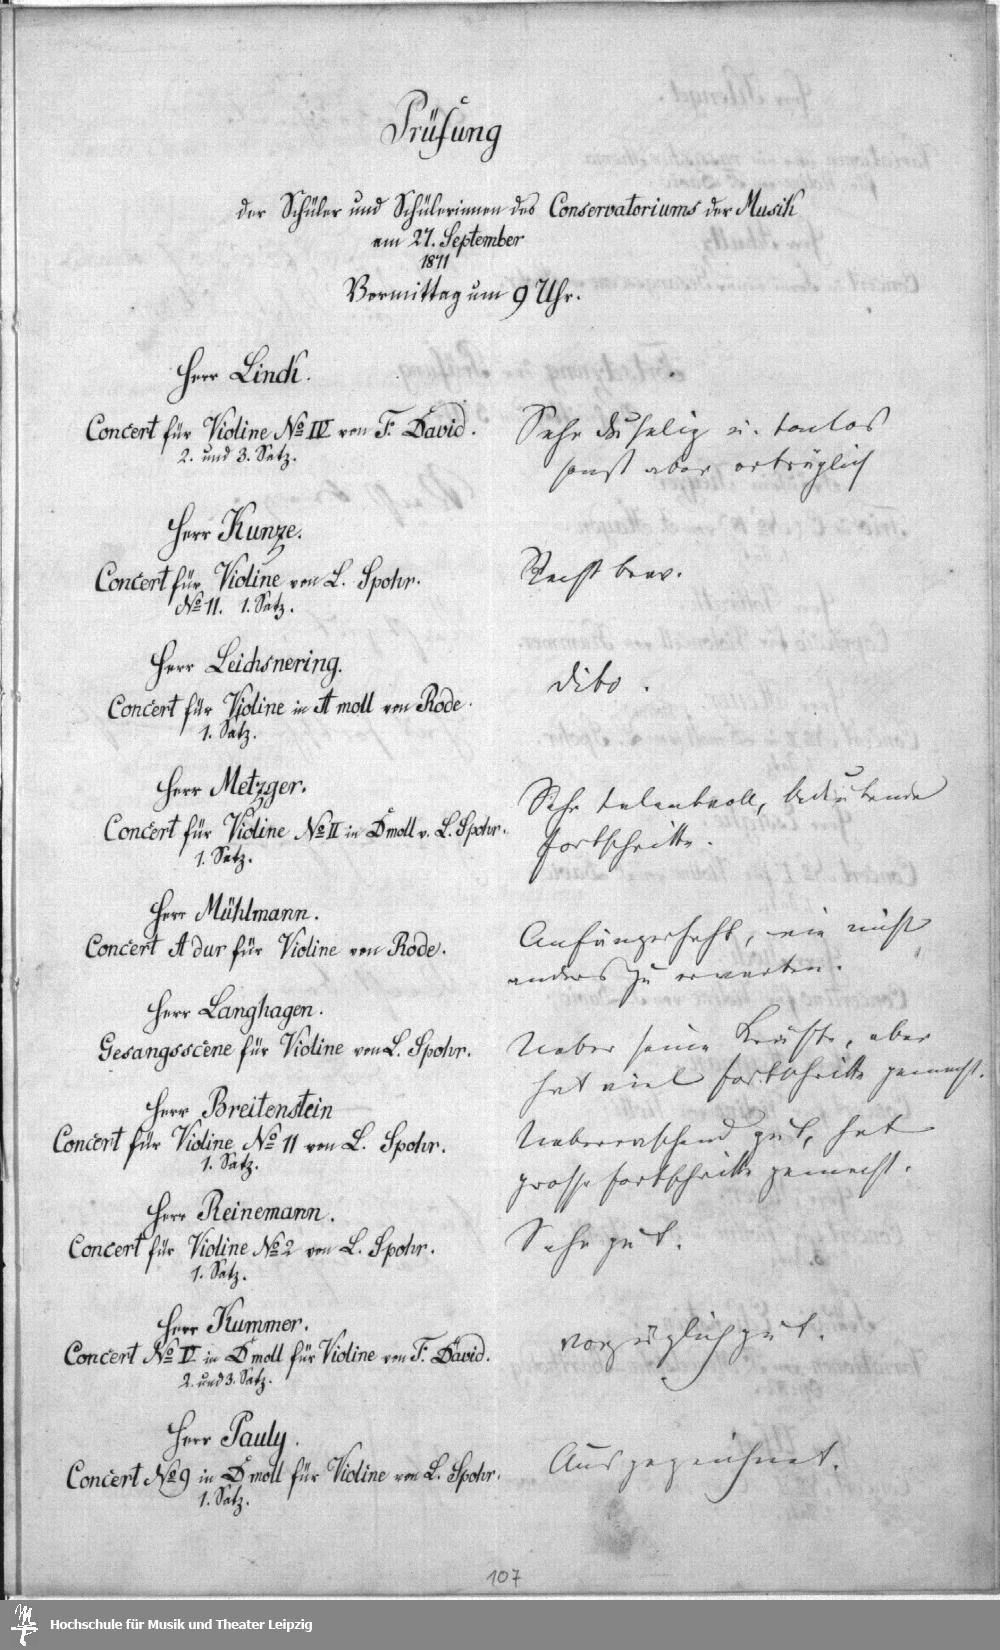 Prüfung
der Schüler und Schülerinnen des Conservatoriums der Musik
am 27. September
1871
Vormittag um 9 Uhr.
Herr Linck.
Concert für Violine No IV von F. David.
2. und 3. Satz.
Sehr duselig u. tonlos
sonst aber erträglich
Herr Kunze.
Concert für Violine von L. Spohr.
No 11. 1. Satz.
Recht brav.
Herr Leichsnering.
Concert für Violine in A moll von Rode.
1. Satz.
dito.
Herr Metzger.
Concert für Violine No II in D moll v. L. Spohr.
1. Satz.
Sehr talentvoll, bedeutende
Fortschritte.
Herr Mühlmann.
Concert A dur für Violine von Rode.
Anfängerhaft, wie nicht
anders zu erwarten.
Herr Langhagen.
Gesangsscene für Violine von L. Spohr.
Ueber seine Kräfte, aber
hat viel Fortschritte gemacht.
Herr Breitenstein
Concert für Violine No 11 von L. Spohr.
1. Satz.
Ueberraschend gut, hat
grosse Fortschritte gemacht.
Herr Reinemann.
Concert für Violine No 2 von L. Spohr.
1. Satz.
Sehr gut.
Herr Kummer.
Concert No V in D moll für Violine von F. David.
2. und 3. Satz.
vorzüglich gut.
Herr Pauly.
Concert No 9 in D moll für Violine von L. Spohr.
1. Satz.
Ausgezeichnet.
107
Hochschule für Musik und Theater Leipzig